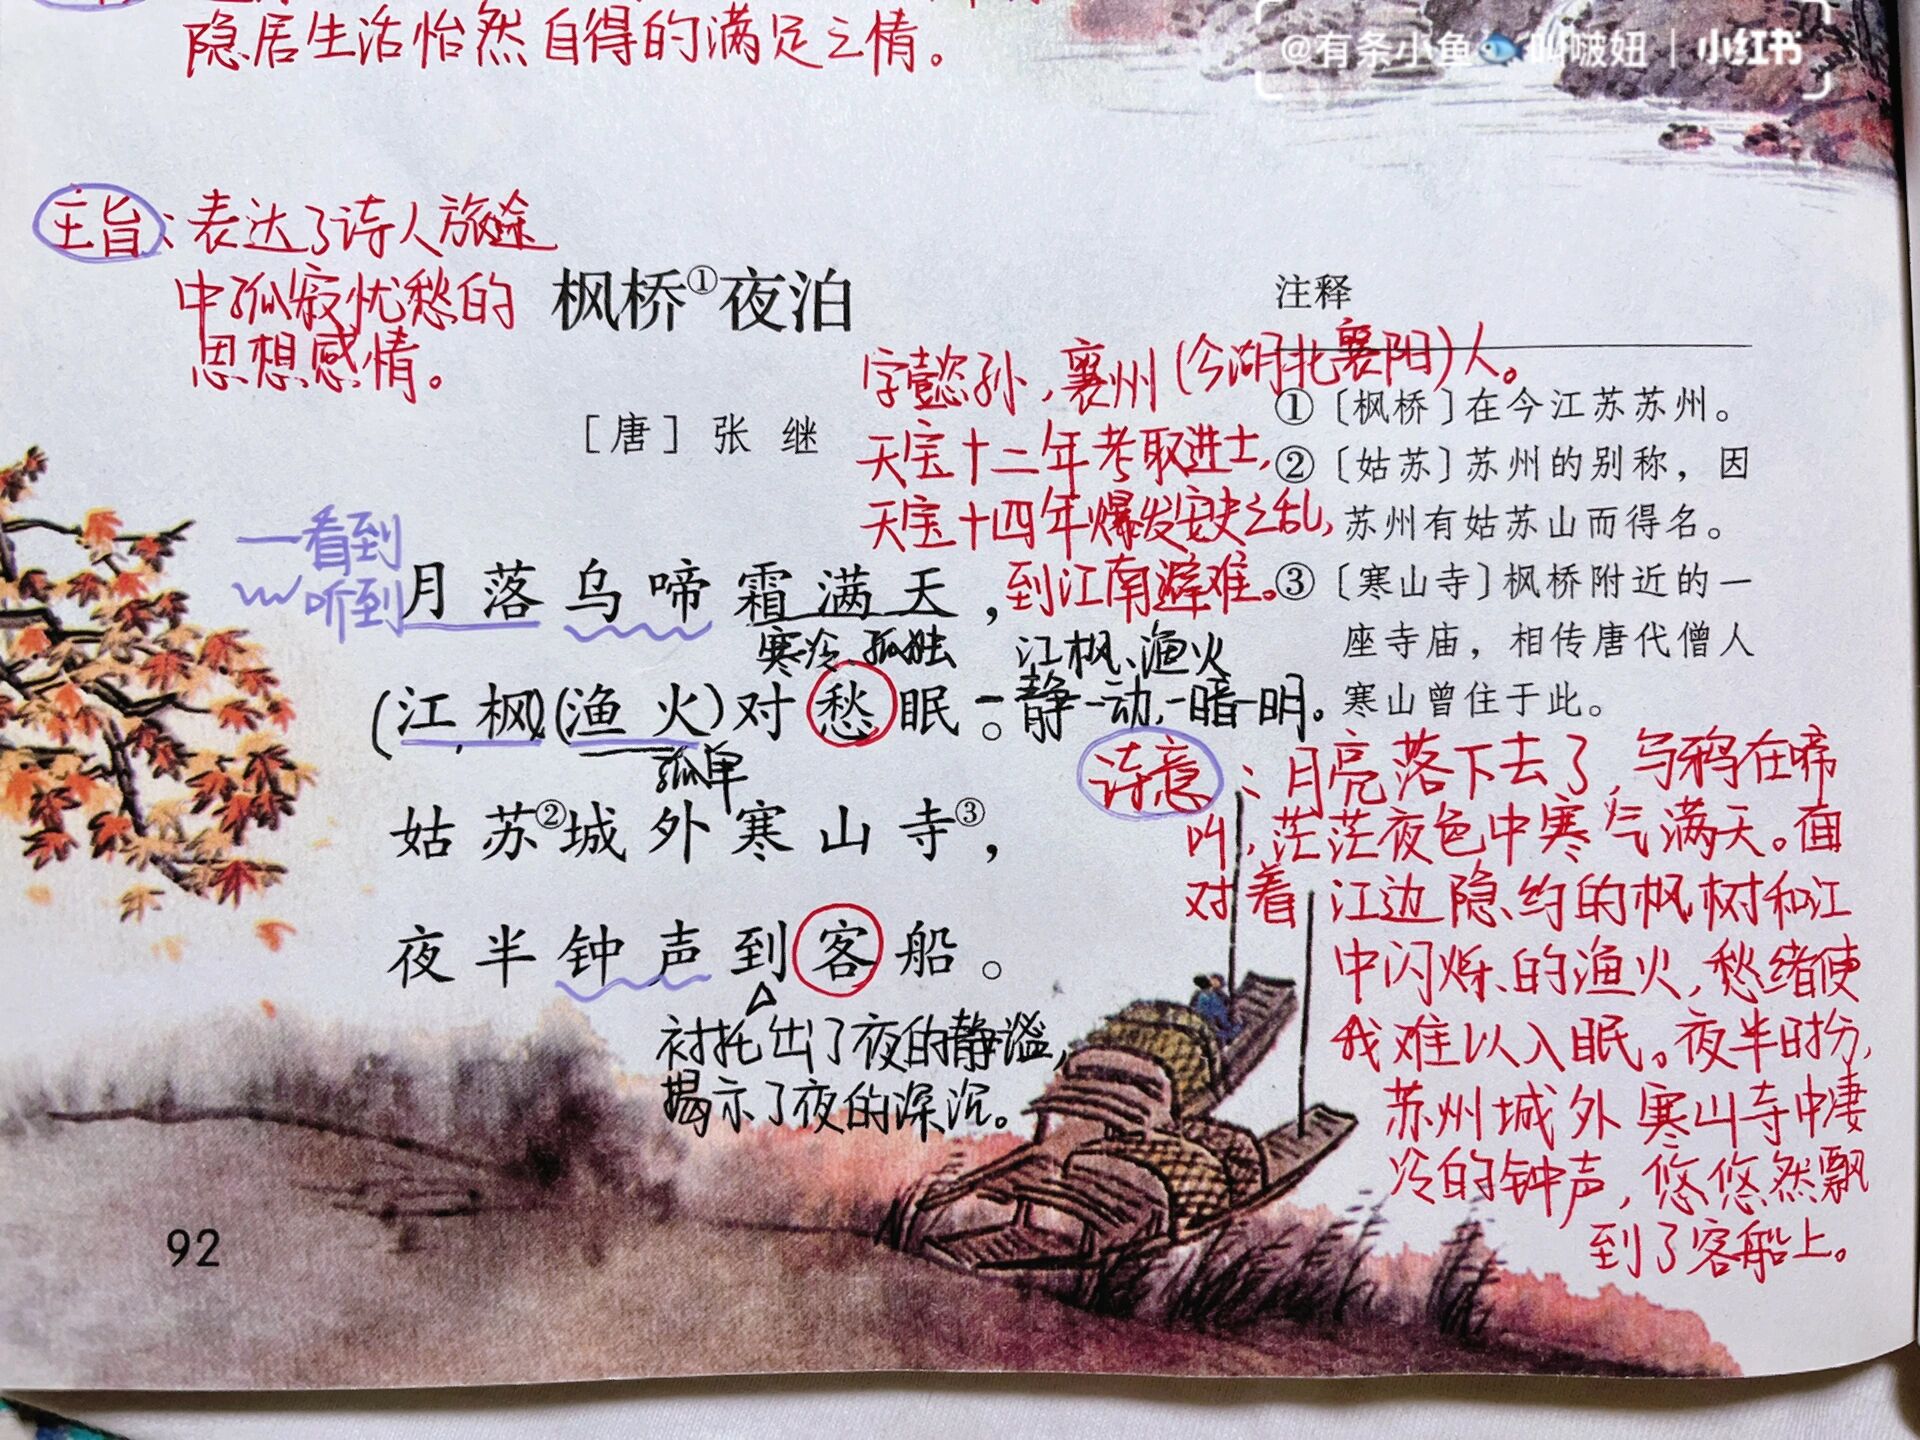 隐居生活怡然自得的满足之情。
@有条小鱼🐟叫啵妞 | 小红书
主旨：表达了诗人旅途
中孤寂忧愁的
思想感情。
枫桥①夜泊
［唐］张继
字懿孙，襄州(今湖北襄阳)人。
天宝十二年考取进士，
天宝十四年爆发安史之乱，
到江南避难。
一看到
﹏听到
月落乌啼霜满天，
寒冷、孤独
(江枫)(渔火)对愁眠。
江枫、渔火
一静一动，一暗一明。
孤单
姑苏②城外寒山寺③，
夜半钟声到客船。
衬托出了夜的静谧，
揭示了夜的深沉。
注释
①〔枫桥〕在今江苏苏州。
②〔姑苏〕苏州的别称，因
苏州有姑苏山而得名。
③〔寒山寺〕枫桥附近的一
座寺庙，相传唐代僧人
寒山曾住于此。
诗意：月亮落下去了，乌鸦在啼
叫，茫茫夜色中寒气满天。面
对着江边隐约的枫树和江
中闪烁的渔火，愁绪使
我难以入眠。夜半时分，
苏州城外寒山寺中凄
冷的钟声，悠悠然飘
到了客船上。
92